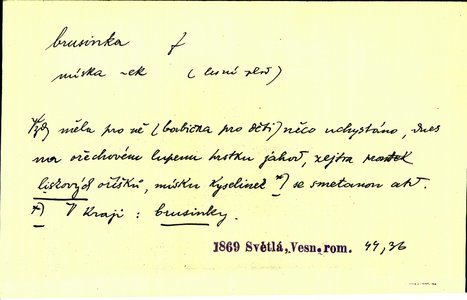 brusinka f
miska -ek (lesní plod)
Vždy měla pro ně (babička pro děti) něco uchystáno, dnes
na ořechovém lupenu hrstku jahod, zejtra
lískových oříšků, misku kyselinek *) se smetanou atd.
*) V kraji: brusinky.
1869 Světlá, Vesn. rom. 44, 36